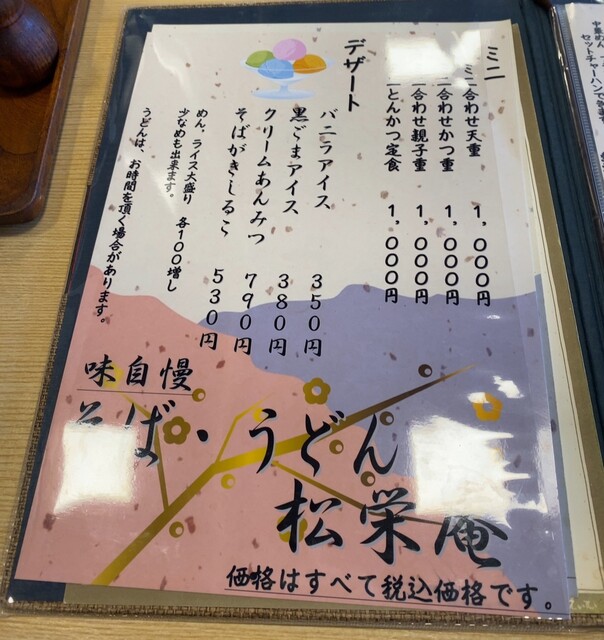 ミニ
ミニ合わせ天重 1,000円
ニ合わせかつ重 1,000円
ニ合わせ親子重 1,000円
とんかつ定食 1,000円
デザート
バニラアイス 350円
黒ごまアイス 380円
クリームあんみつ 790円
そばがきしるこ 530円
めん。ライス大盛り 各100増し
少なめも出来ます。
うどんは、お時間を頂く場合があります。
味自慢
そば・うどん
松栄庵
価格はすべて税込価格です。